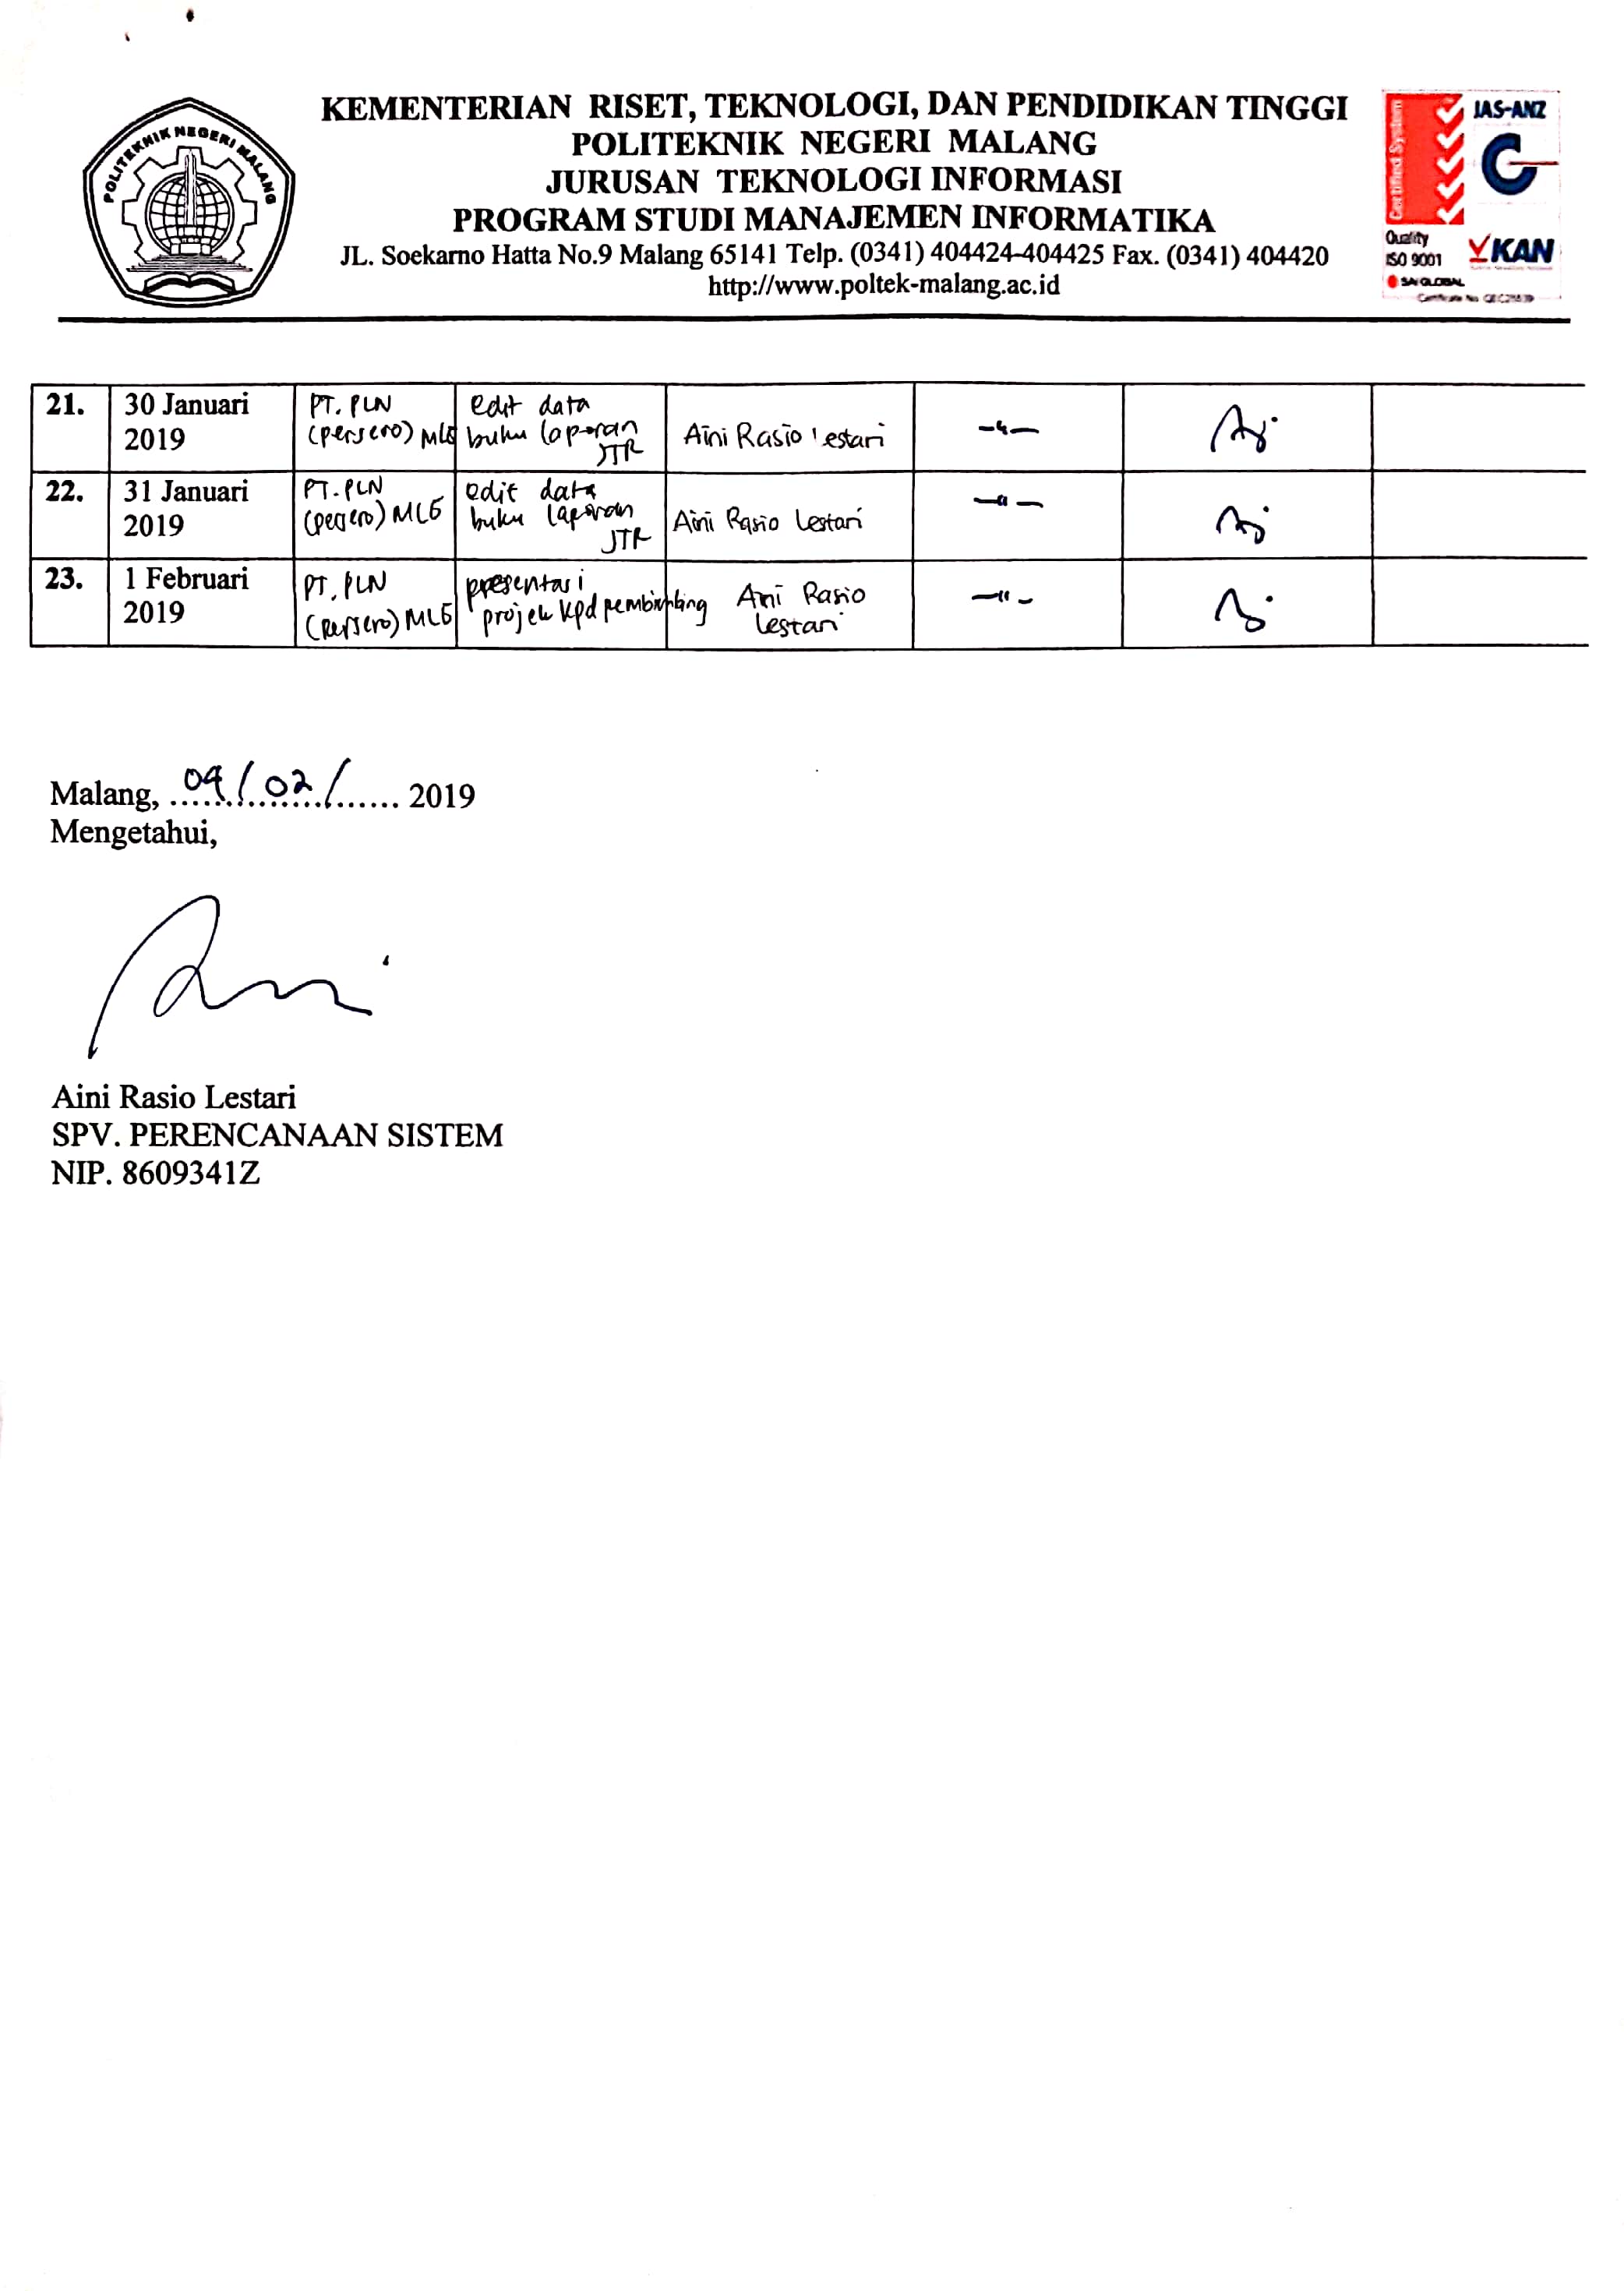 POLITEKNIK NEGERI MALANG
KEMENTERIAN RISET, TEKNOLOGI, DAN PENDIDIKAN TINGGI
POLITEKNIK NEGERI MALANG
JURUSAN TEKNOLOGI INFORMASI
PROGRAM STUDI MANAJEMEN INFORMATIKA
JL. Soekarno Hatta No.9 Malang 65141 Telp. (0341) 404424-404425 Fax. (0341) 404420
http://www.poltek-malang.ac.id
Certified System
JAS-ANZ
Quality
ISO 9001
KAN
SAI GLOBAL
Certificate No.
21. 30 Januari 2019 PT. PLN (persero) MLG edit data buku laporan JTR Aini Rasio Lestari -"-
22. 31 Januari 2019 PT. PLN (persero) MLG edit data buku laporan JTR Aini Rasio Lestari -"-
23. 1 Februari 2019 PT. PLN (persero) MLG presentasi projek kpd pembimbing Aini Rasio Lestari -"-
Malang, 04/02/ 2019
Mengetahui,
Aini Rasio Lestari
SPV. PERENCANAAN SISTEM
NIP. 8609341Z